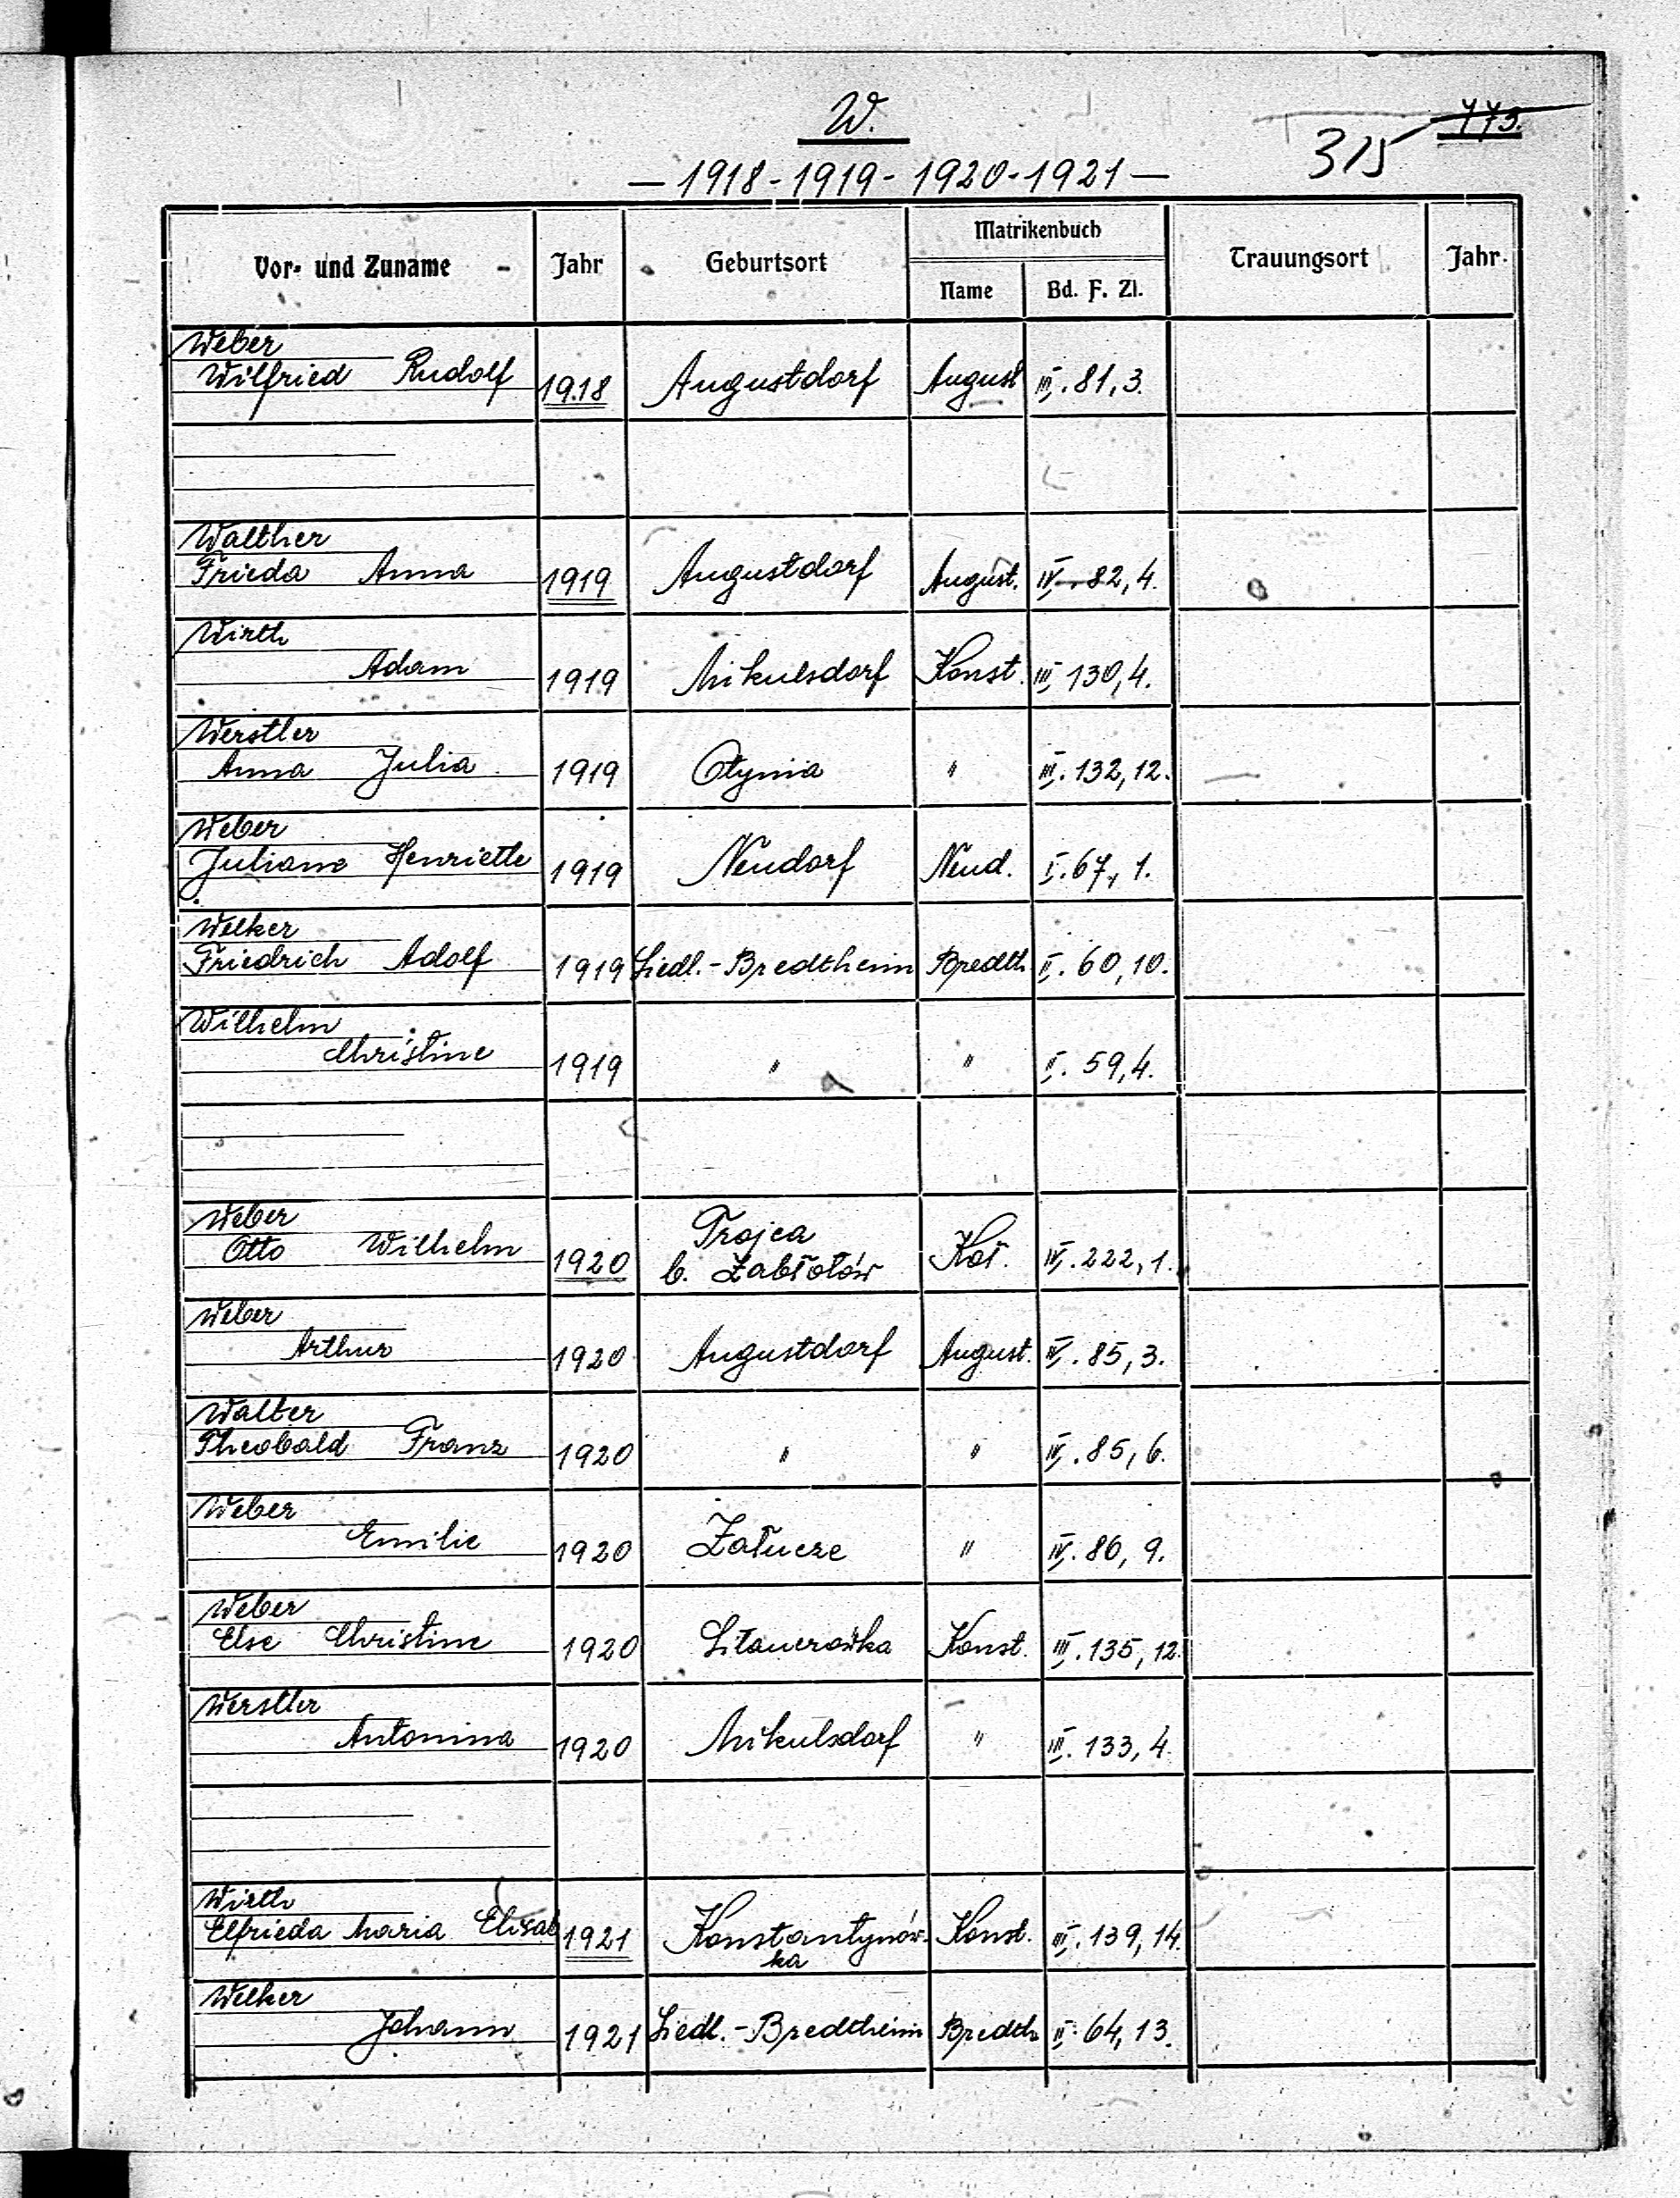 W.
315 773.
— 1918 - 1919 - 1920 - 1921 —
Vor- und Zuname - Jahr Geburtsort Matrikenbuch Trauungsort Jahr.
Name Bd. F. Zl.
Weber
Wilfried Rudolf 1918 Augustdorf August III. 81, 3.
Walther
Frieda Anna 1919 Augustdorf August. IV. 82, 4.
Wirth
Adam 1919 Mikulsdorf Konst. III 130, 4.
Werstler
Anna Julia 1919 Otynia " III. 132, 12.
Weber
Juliane Henriette 1919 Neudorf Neud. I. 67, 1.
Welker
Friedrich Adolf 1919 Siedl.-Bredtheim Bredth II. 60, 10.
Wilhelm
Christine 1919 " " II. 59, 4.
Weber
Otto Wilhelm 1920 Trojca
b. Zabłotów Koł. IV. 222, 1.
Weber
Arthur 1920 Augustdorf August. IV. 85, 3.
Walter
Theobald Franz 1920 " " IV. 85, 6.
Weber
Emilie 1920 Załucze " IV. 86, 9.
Weber
Else Christine 1920 Sitauerówka Konst. III. 135, 12.
Werstler
Antonina 1920 Mikulsdorf " III. 133, 4.
Wirth
Elfrieda Maria Elisab 1921 Konstantynów-
ka Konst. III. 139, 14.
Welker
Johann 1921 Siedl.-Bredtheim Bredth II. 64, 13.